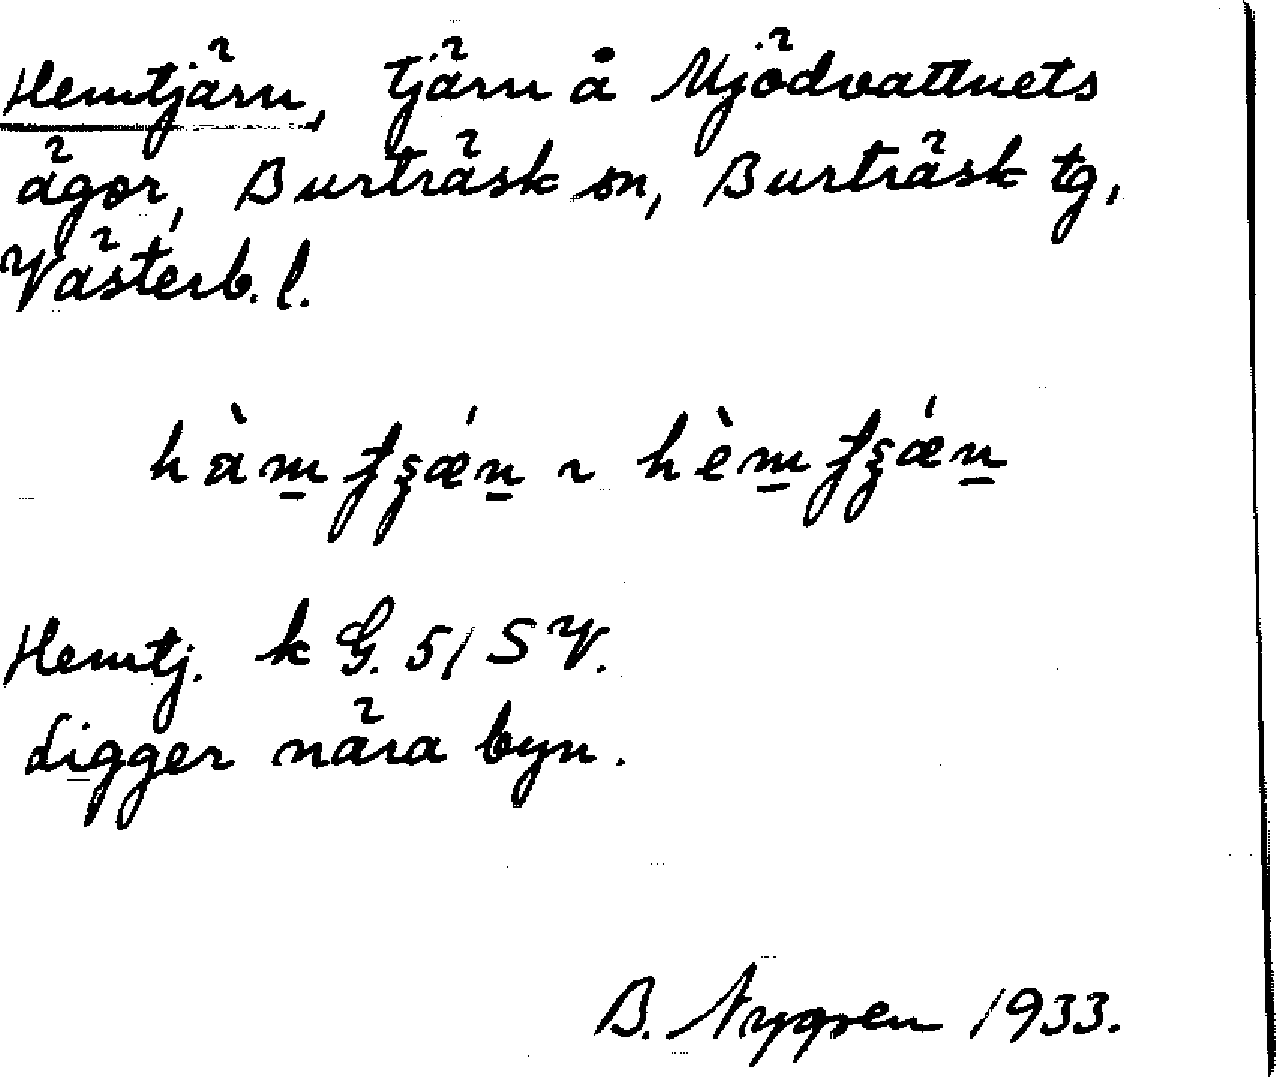 Hemtjärn, tjärn å Mjödvattnets
ägor, Burträsk sn, Burträsk tg,
Västerb. l.
hàm̲ ʃʂǽn̲ ~ hèm̲ ʃʂǽn̲
Hemtj. k G. 51 SV.
Ligger nära byn.
B. Nygren 1933.